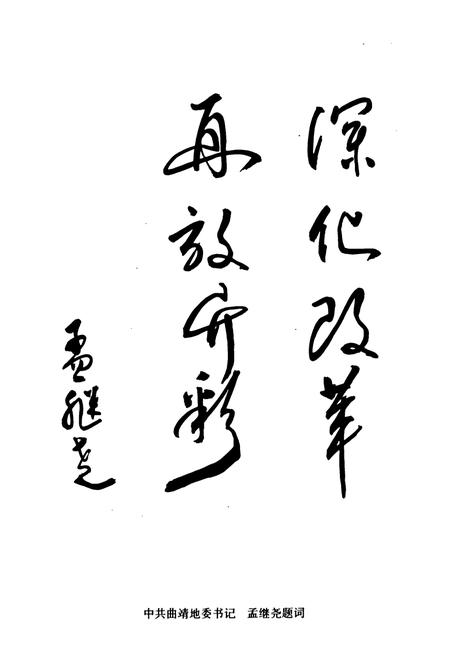 深化改革
再放异彩
孟继尧
中共曲靖地委书记 孟继尧题词